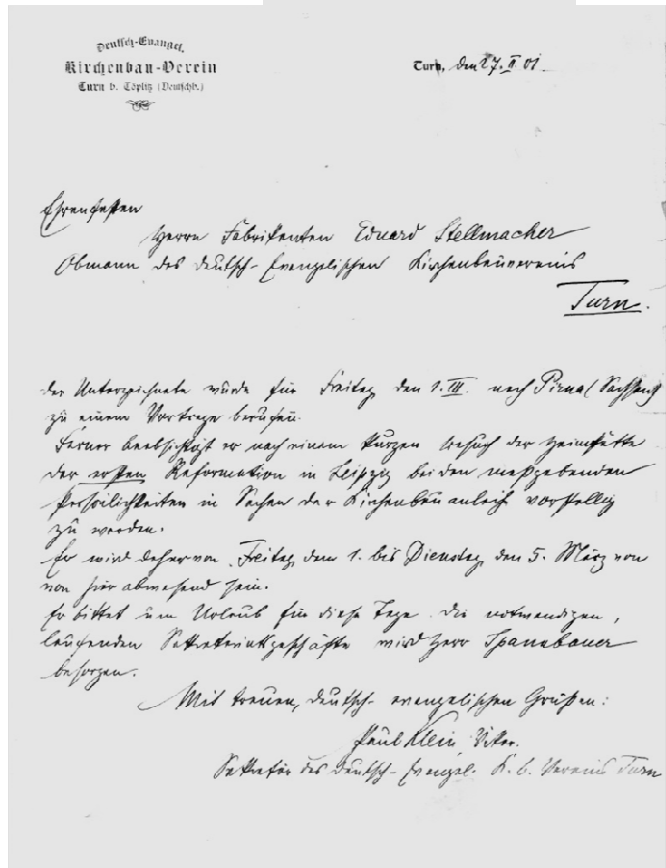 Deutsch-Evangel.
Kirchenbau-Verein
Turn b. Töplitz (Deutschb.)
Turn, den 27. II 01.
Ehrenfesten
Herrn Fabrikanten Eduard Stellmacher
Obmann des deutsch-Evangelischen Kirchenbauvereins
Turn.
der Unterzeichnete wurde für Freitag den 1. III. nach Pirna (Sachsen)
zu einem Vortrage berufen.
Ferner beabsichtigt er nach einem kurzen Besuch der Heimstätte
der ersten Reformation in Leipzig bei den maßgebenden
Persönlichkeiten in Sachen der Kirchenbauanleihe vorstellig
zu werden.
Er wird daher von Freitag, dem 1. bis Dienstag, den 5. März von
von hier abwesend sein.
Er bittet um Urlaub für diese Tage. Die notwendigen,
laufenden Sekretariatsgeschäfte wird Herr Spanabauer
besorgen.
Mit treuen, deutsch-evangelischen Grüßen:
Paul Klein, Vikar.
Sekretär des deutsch-Evangel. K. b. Vereins Turn